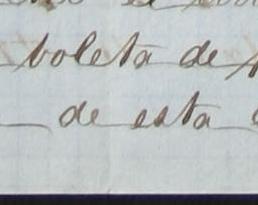 boleta de
de esta